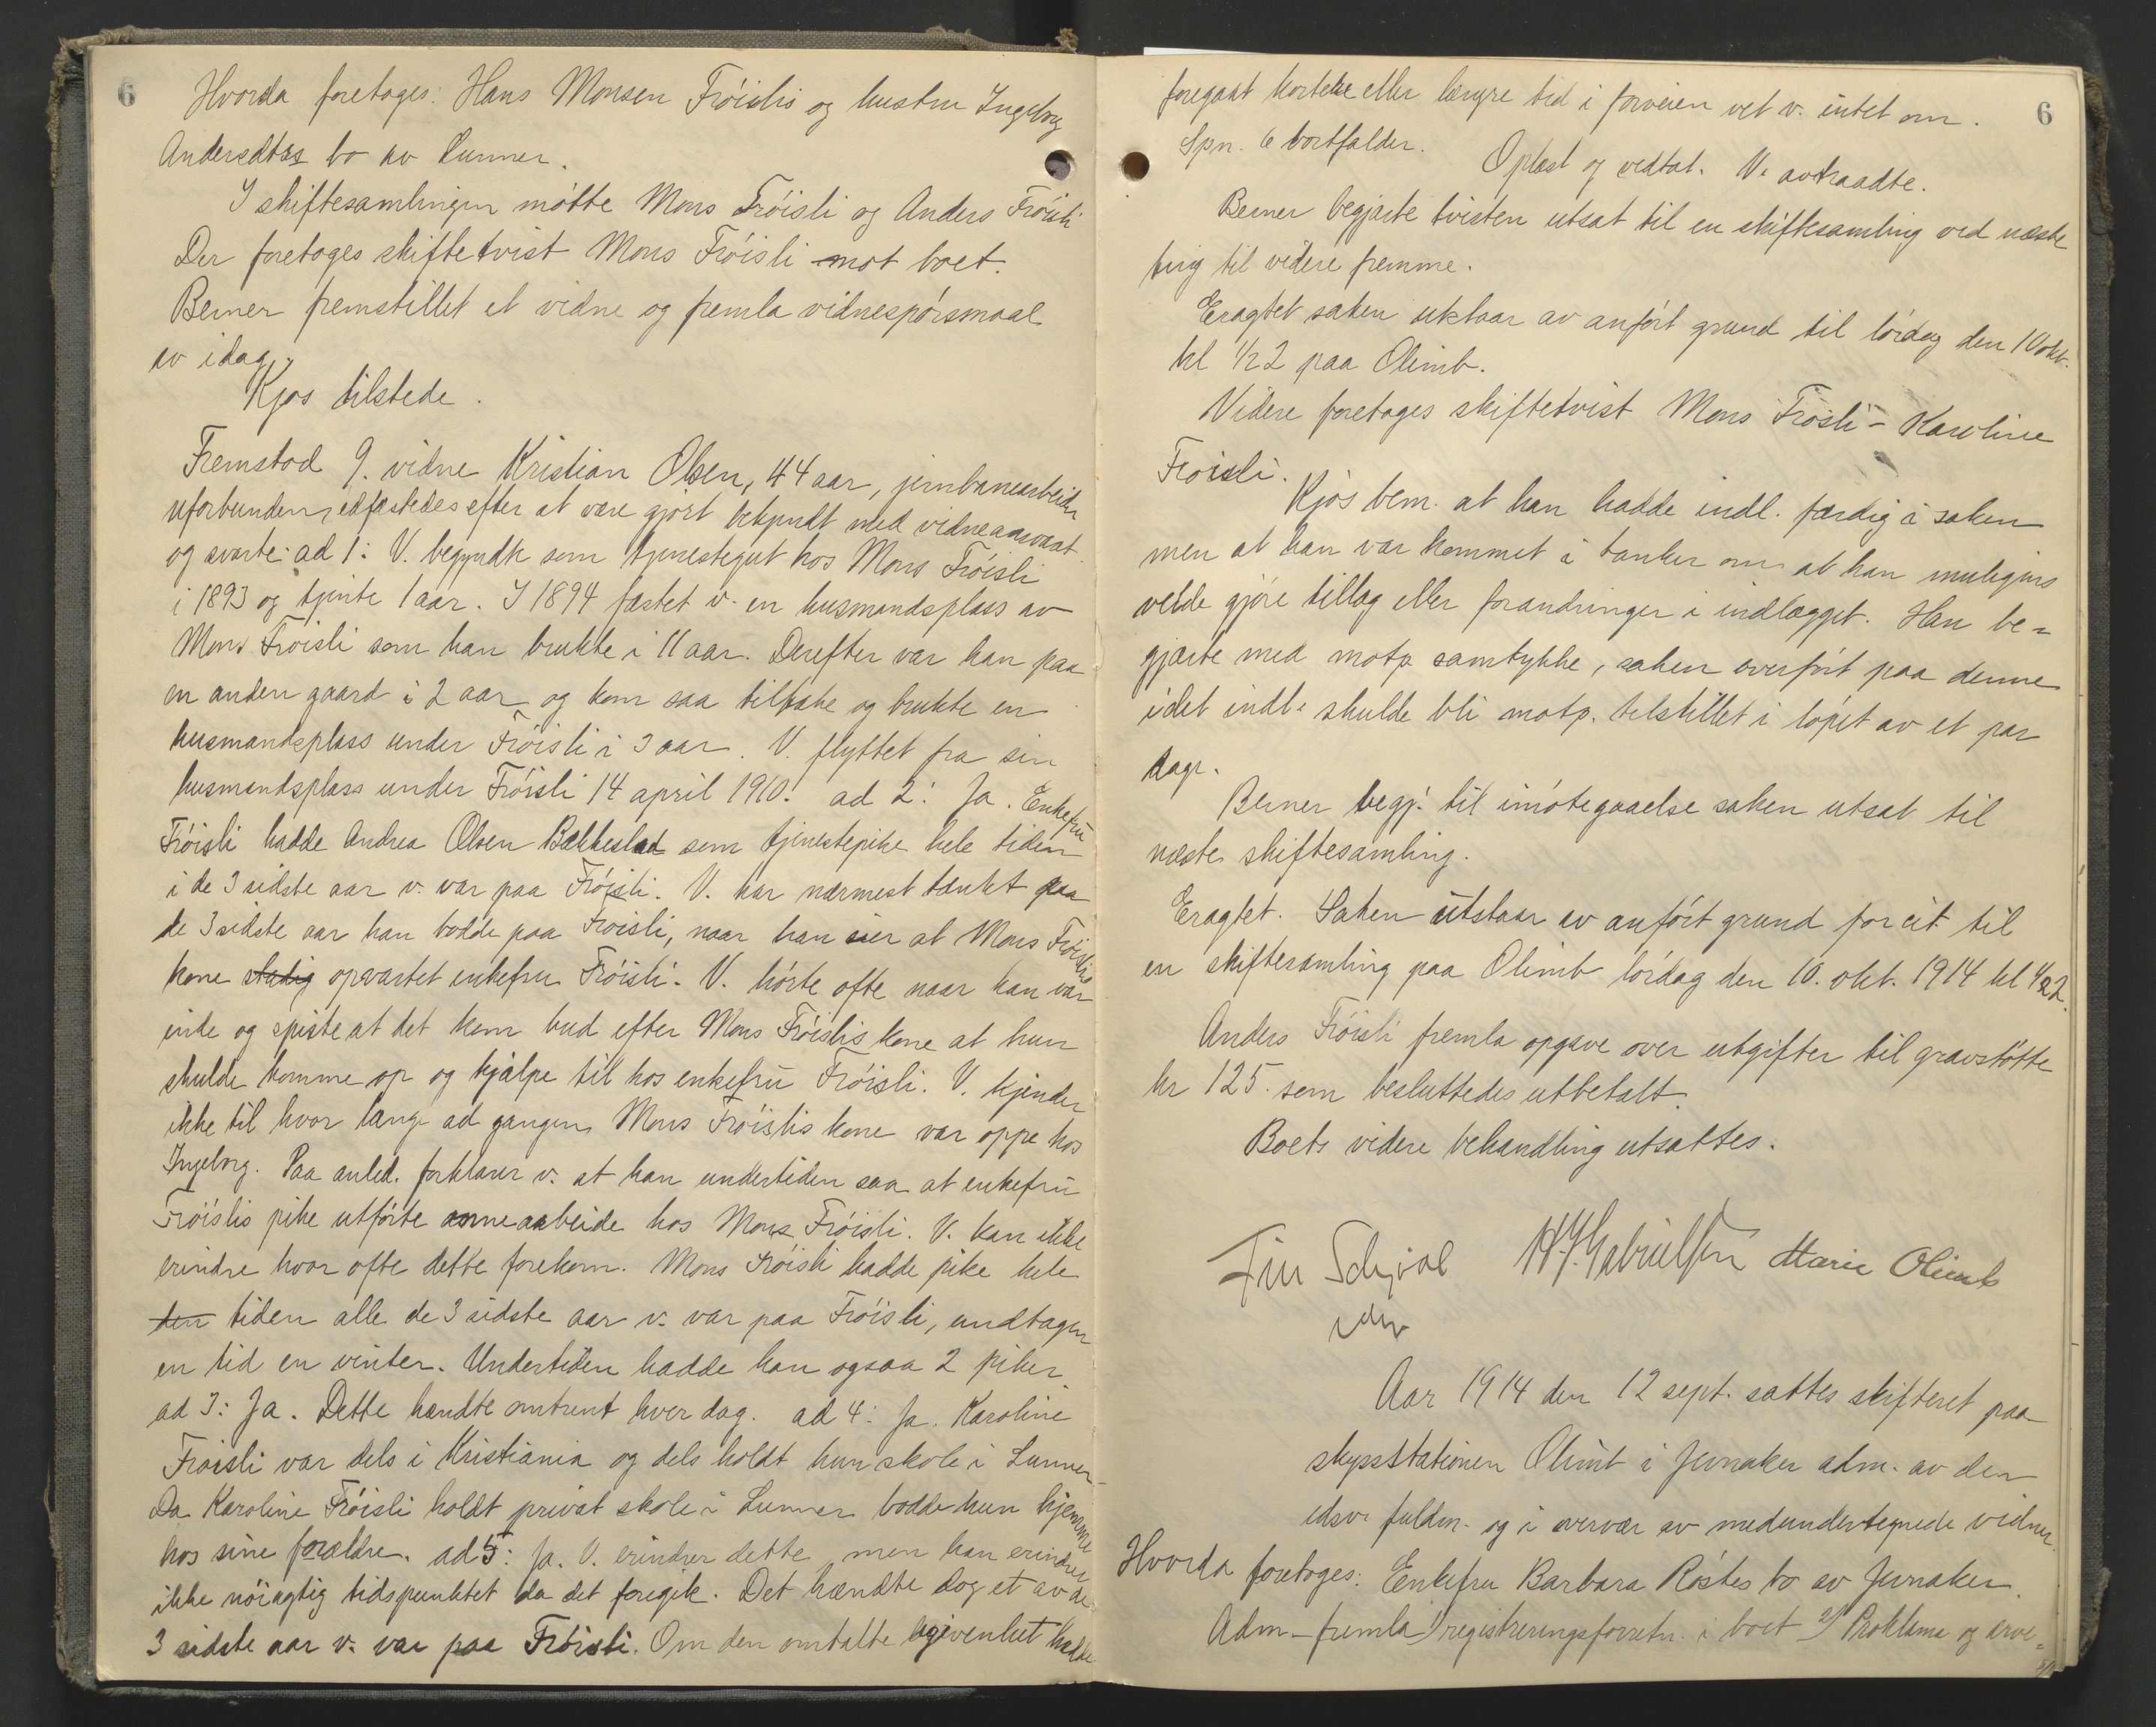 6
Hvorda foretoges: Hans Monsen Fröislis og hustru Ingeborg
Andersdtrs bo av Lunner.
I skiftesamlingen mötte Mons Fröisli og Anders Fröisli
Der foretoges skiftetvist Mons Fröisli mot boet.
Berner fremstillet et vidne og fremla vidnespörsmaal
av idag.
Kjos tilstede.
Fremstod 9. vidne Kristian Olsen, 44 aar, jernbanearbeider
uforbunden, edfæstedes efter at være gjört bekjendt med vidneansvaret
og svarte: ad 1: V. begyndte som tjenestegut hos Mons Fröisli
i 1893 og tjente 1 aar. I 1894 fæstet v. en husmandsplass av
Mons Fröisli som han brukte i 11 aar. Derefter var han paa
en anden gaard i 2 aar og kom saa tilbake og brukte en
husmandsplass under Fröisli i 3 aar. V. flyttet fra sin
husmandsplass under Fröisli 14 april 1910. ad 2: Ja. Enkefru
Fröisli hadde Andrea Olsen Bækkeslad som tjenestepike hele tiden
i de 3 sidste aar v. var paa Fröisli. V. har nærmest tænkt paa
de 3 sidste aar han bodde paa Fröisli, naar han sier at Mons Fröislis
kone stadig opvartet enkefru Fröisli. V. hörte ofte naar han var
inde og spiste at det kom bud efter Mons Fröislis kone at hun
skulde komme op og hjælpe til hos enkefru Fröisli. V. kjender
ikke til hvor længe ad gangen Mons Fröislis kone var oppe hos
Ingeborg. Paa anled. forklarer v. at han undertiden saa at enkefru
Fröislis pike utförte onnearbeide hos Mons Fröisli. V. kan ikke
erindre hvor ofte dette forekom. Mons Fröisli hadde pike hele
den tiden alle de 3 sidste aar v. var paa Fröisli, undtagen
en tid en vinter. Undertiden hadde han ogsaa 2 piker.
ad 3: Ja. Dette hændte omtrent hver dag. ad 4: Ja. Karoline
Fröisli var dels i Kristiania og dels holdt hun skole i Lunner.
Da Karoline Fröisli holdt privat skole i Lunner bodde hun hjemme
hos sine forældre. ad 5: Ja. V. erindrer dette, men han erindrer
ikke nöiagtig tidspunktet da det foregik. Det hændte dog et av de
3 sidste aar v. var paa Fröisli. Om den omtalte begivenhet hadde
6
foregaat kortere eller længre tid i forveien vet v. intet om.
Spm. 6 bortfalder.
Oplæst og vedtat. V. avtraadte.
Berner begjærte tvisten utsat til en skiftesamling ved næste
ting til videre fremme.
Eragtet saken utstaar av anfört grund til lördag den 10 okt.
kl 1/2 2 paa Olimb.
Videre foretoges skiftetvist Mons Frösli - Karoline
Fröisli.
Kjos bem. at han hadde indl. færdig i saken
men at han var kommet i tanker om at han muligens
vilde gjöre tillæg eller forandringer i indlægget. Han be=
gjærte med motp. samtykke, saken overfört paa denne
idet indl. skulde bli motp. tilstillet i löpet av et par
dage.
Berner begj. til imötegaaelse saken utsat til
næste skiftesamling.
Eragtet. Saken utstaar av anfört grund forcit til
en skiftesamling paa Olimb lördag den 10. okt. 1914 kl 1/2 2.
Anders Fröisli fremla opgave over utgifter til gravstötte
kr 125. som besluttedes utbetalt.
Boets videre behandling utsattes.
Marie Olimb
Aar 1914 den 12 sept. sattes skifteret paa
skysstationen Olimb i Jevnaker adm. av den
edsv. fuldm. og i overvær av medundertegnede vidner.
Hvorda foretoges: Enkefru Barbara Röstes bo av Jevnaker.
Adm. fremla 1) registreringsforretn. i boet 2) Proklama og arve=